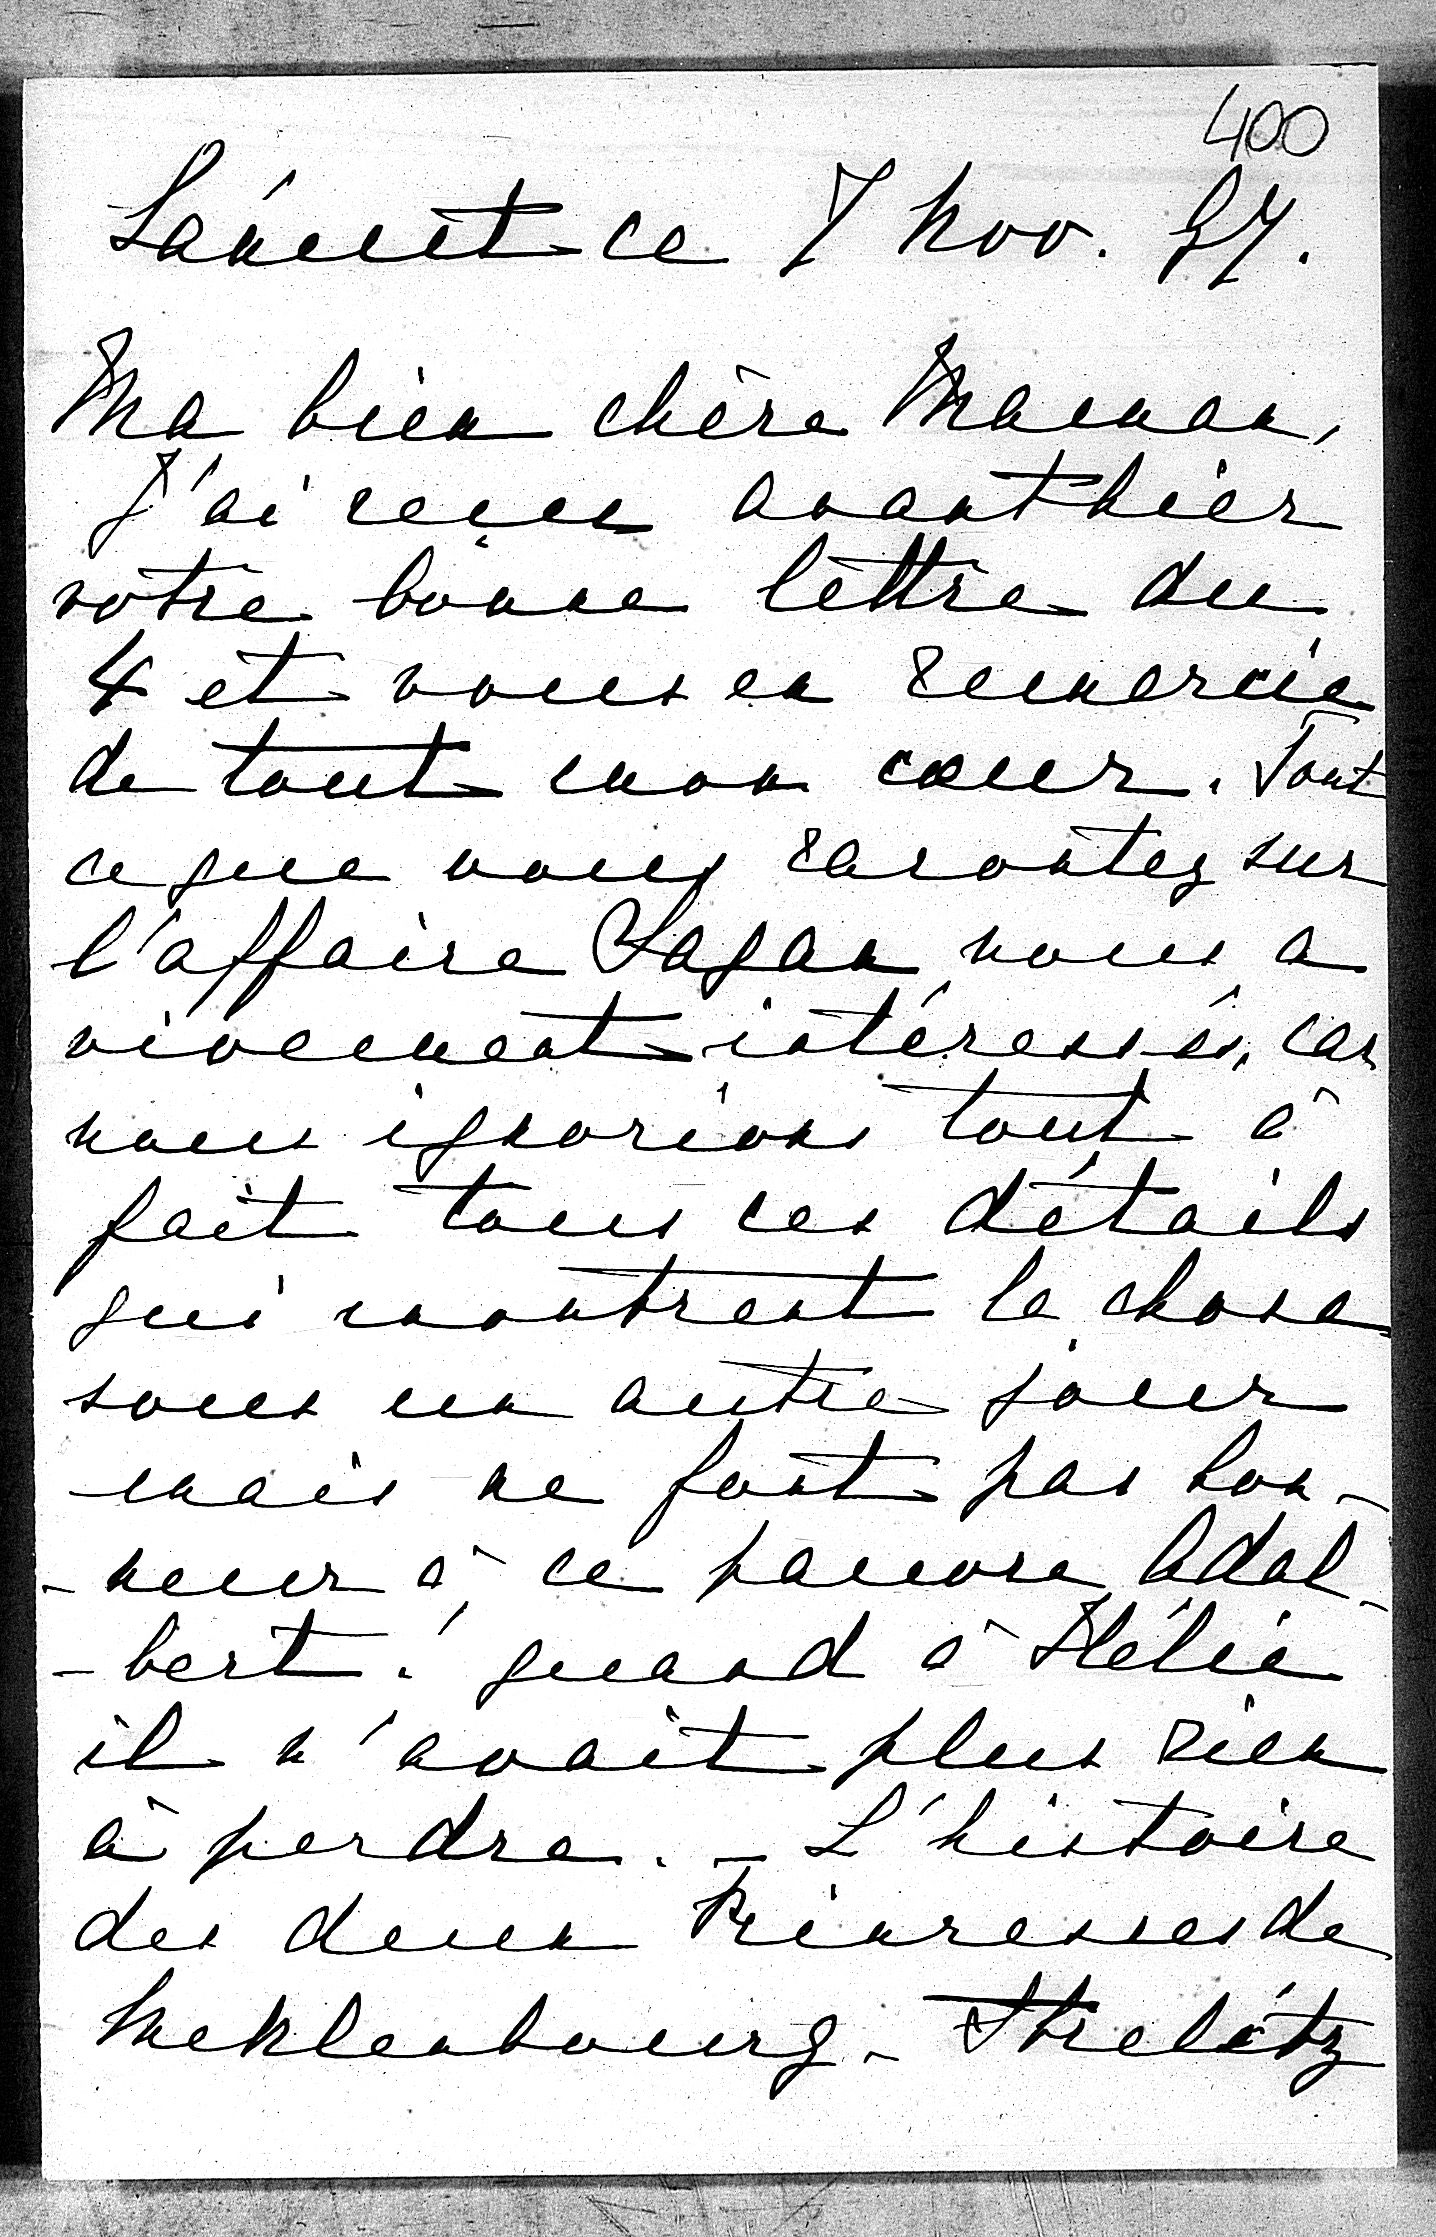 400
Láncut ce 7 nov. 97.
Ma bien chère Maman,
J'ai reçu avanthier
votre bonne lettre du
4 et vous en remercie
de tout mon cœur. Tout
ce que vous racontez sur
l'affaire Sagan nous a
vivement intéressés, car
nous ignorions tout à
fait tous ces détails
qui montrent la chose
sous un autre jour
mais ne font pas hon-
-neur à ce pauvre Adal-
-bert! quand à Hélie
il n'avait plus rien
à perdre. - L'histoire
des deux Princesses de
Meklenbourg-Strelitz